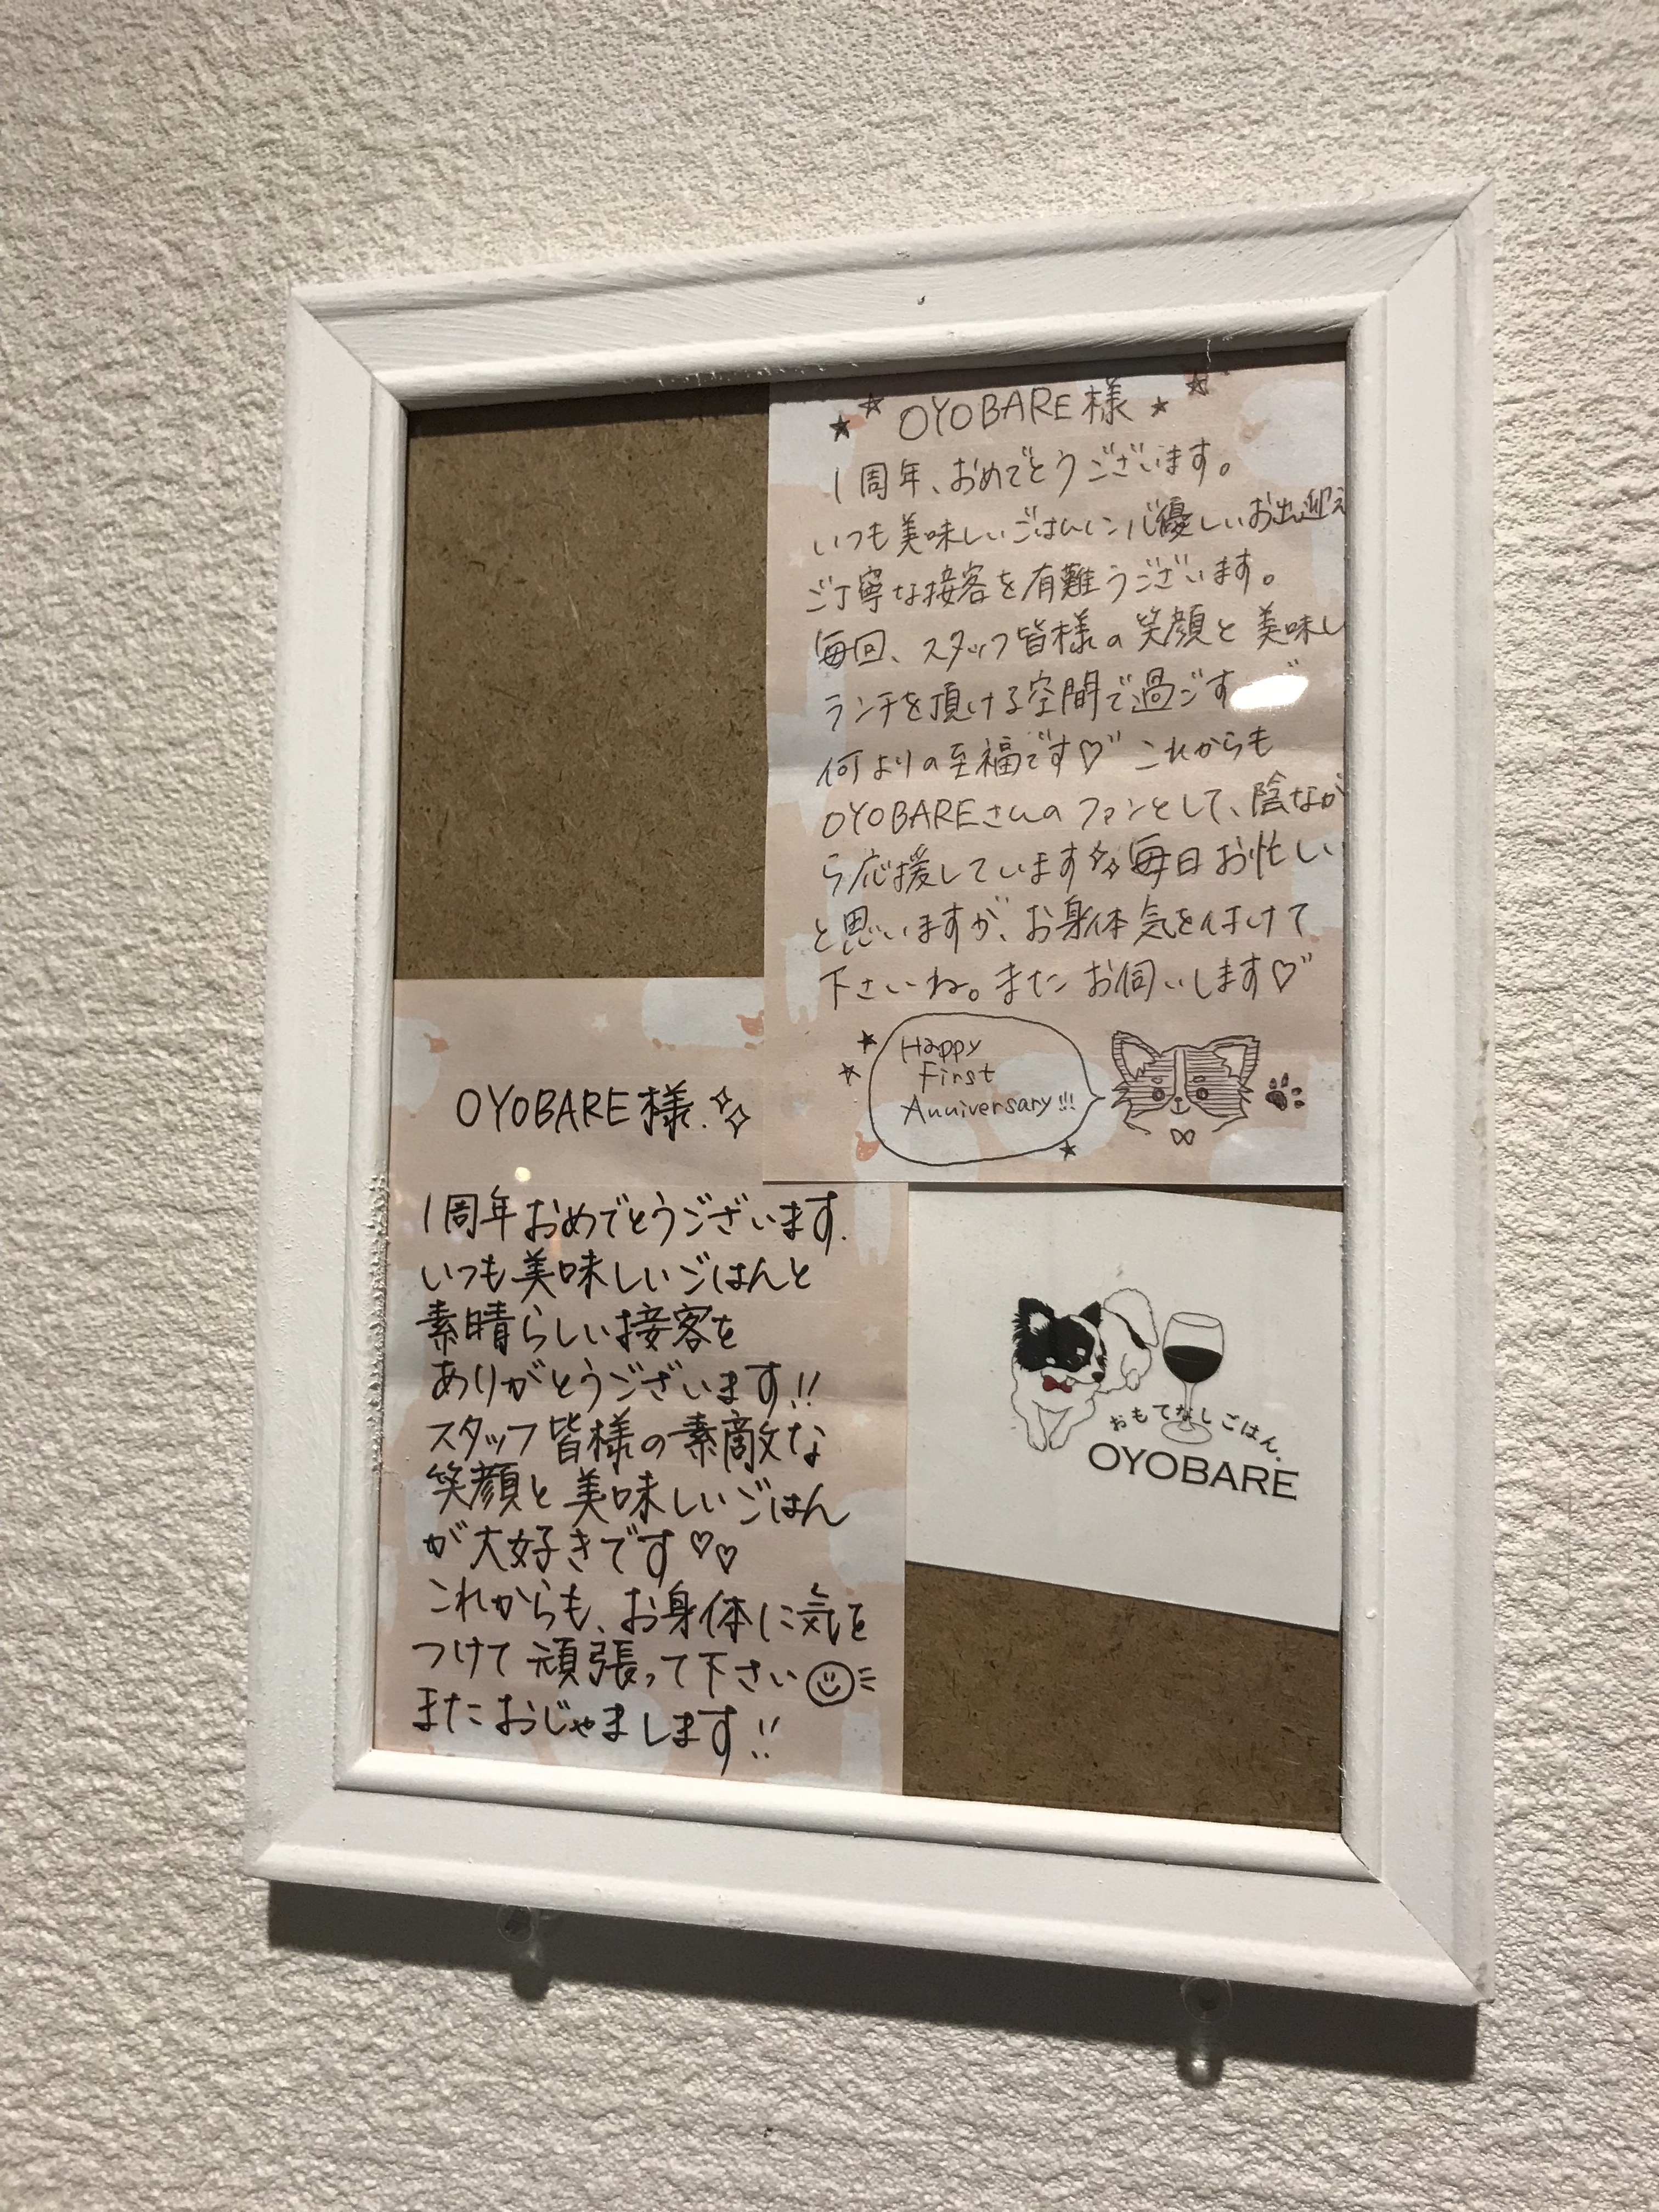 OYOBARE様
1周年、おめでとうございます。
いつも美味しいごはんに心優しいお出迎え
ご丁寧な接客を有難うございます。
毎回、スタッフ皆様の笑顔と美味し
ランチを頂ける空間で過ごす
何よりの至福です♡ これからも
OYOBAREさんのファンとして、陰なが
ら応援しています 毎日お忙しい
と思いますが、お身体気を付けて
下さいね。またお伺いします♡
Happy
First
Anniversary!!!
OYOBARE様.
1周年おめでとうございます.
いつも美味しいごはんと
素晴らしい接客を
ありがとうございます!!
スタッフ皆様の素敵な
笑顔と美味しいごはん
が大好きです♡♡
これからも、お身体に気を
つけて頑張って下さい
またおじゃまします!!
おもてなしごはん。
OYOBARE